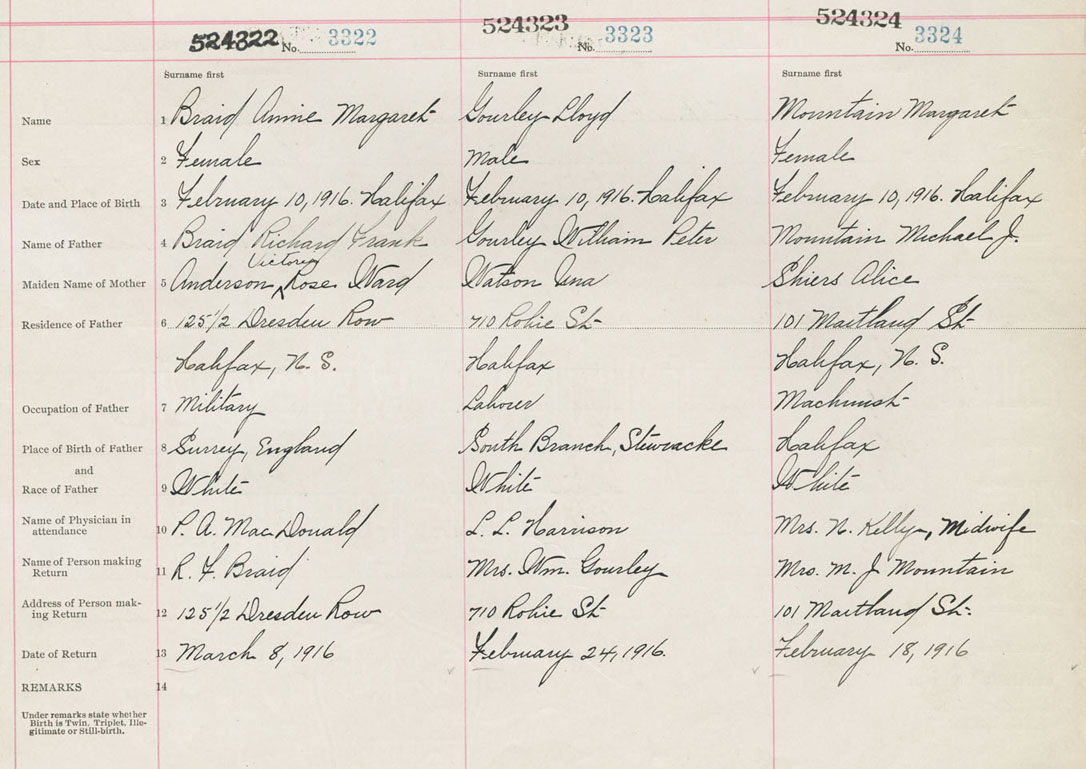 524322 No. 3322 524323 No. 3323 524324 No. 3324
Surname first Surname first Surname first
Name 1 Braid Annie Margaret Gourley Lloyd Mountain Margaret
Sex 2 Female Male Female
Date and Place of Birth 3 February 10, 1916. Halifax February 10, 1916. Halifax February 10, 1916. Halifax
Name of Father 4 Braid Richard Frank Gourley William Peter Mountain Michael J.
Victoria
Maiden Name of Mother 5 Anderson Rose Ward Watson Una Shiers Alice
Residence of Father 6 125 1/2 Dresden Row 710 Robie St 101 Maitland St
Halifax, N. S. Halifax Halifax, N. S.
Occupation of Father 7 Military Laborer Machinist
Place of Birth of Father 8 Surrey, England South Branch, Stewiacke Halifax
and
Race of Father 9 White White White
Name of Physician in
attendance 10 P. A. MacDonald L. L. Harrison Mrs. N. Kelly, Midwife
Name of Person making
Return 11 R. F. Braid Mrs. Wm. Gourley Mrs. M. J Mountain
Address of Person mak-
ing Return 12 125 1/2 Dresden Row 710 Robie St 101 Maitland St.
Date of Return 13 March 8, 1916 February 24, 1916. February 18, 1916
REMARKS 14
Under remarks state whether
Birth is Twin, Triplet, Ille-
gitimate or Still-birth.